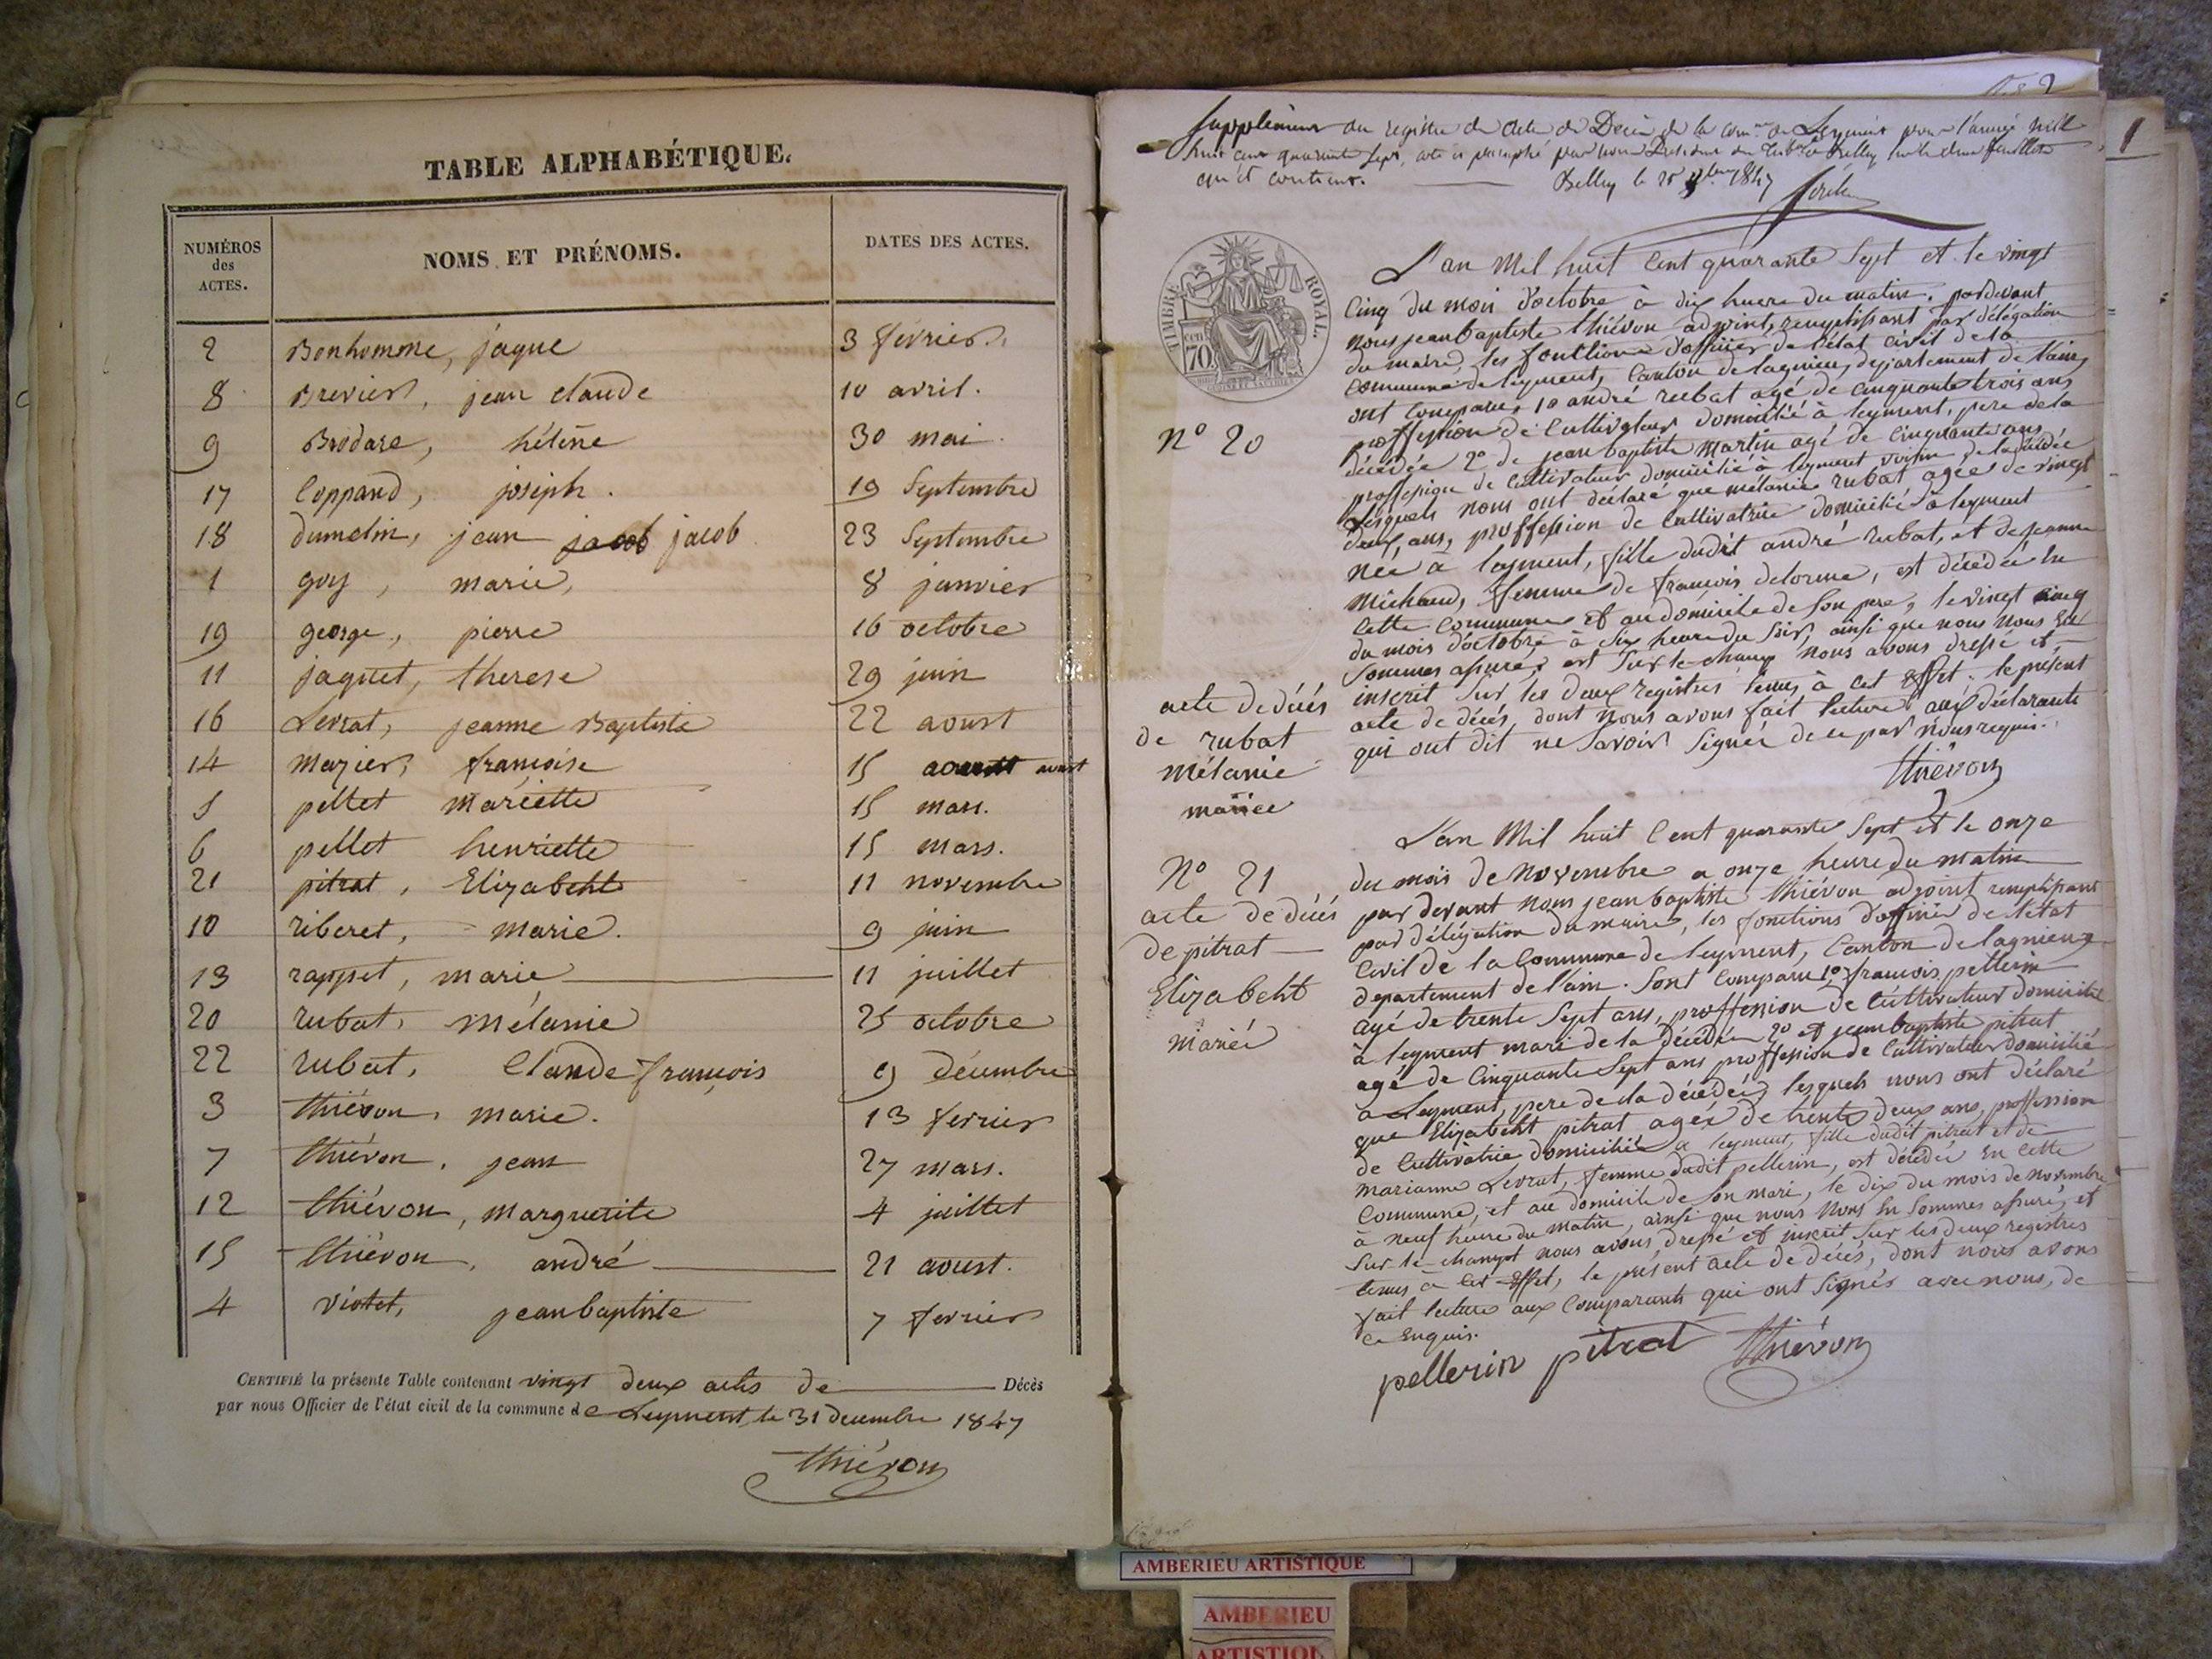 TABLE ALPHABÉTIQUE.
NUMÉROS des ACTES.
NOMS ET PRÉNOMS.
DATES DES ACTES.
2 Bonhomme, jaque 3 février.
8 Brevier, jean claude 10 avril.
9 Brodase, hélène 30 mai.
17 Coppand, joseph. 19 Septembre
18 dumolin, jean jacob jacob 23 Septembre
1 goy, marie, 8 janvier
19 george, pierre 16 octobre
11 jaquet, therese 29 juin
16 Levrat, jeanne Baptiste 22 aoust
14 mazier, françoise 15 aoust aoust
5 pellet mariette 15 mars.
6 pellet henriette 15 mars.
21 pitrat, Elizabeht 11 novembre
10 riberet, marie. 9 juin
13 rappet, marie 11 juillet
20 rubat, mélanie 25 octobre
22 rubat, Claude françois 9 Décembre
3 thiévon, marie. 13 fevrier
7 thiévon, jean 27 mars.
12 thiévon, marguerite 4 juillet
15 thiévon, andré 21 aoust.
4 violet, jean baptiste 7 fevrier
CERTIFIÉ la présente Table contenant vingt deux actes de Décès
par nous Officier de l'état civil de la commune de Leyment le 31 decembre 1847
thiévon
1
Supplément au registre de acte de Décès de la com.ne de Leyment pour l'année mil
huit cent quarante sept, coté et paraphé par nous Président du Trib.al de Belley
Belley le 1847
TIMBRE ROYAL.
70
L'an Mil huit Cent quarante Sept et le vingt
Cinq du mois d'octobre à dix heure du matin, pardevant
nous jean baptiste thiévon adjoint, remplissant par délégation
du maire, les fonctions d'officier de l'état civil de la
Commune de leyment, Canton de lagnieu, departement de l'ain,
ont comparu, 1º andré rubat agé de cinquante trois ans
N° 20
proffession de Cultivateur domicilié à leyment, pere de la
décédée 2º de jean baptiste martin agé de Cinquante ans
proffession de Cultivateur domicilié à leyment voisin de la décédée
Lesquels nous ont déclaré que mélanie rubat agée de vingt
deux ans, proffession de Cultivatrice domicilié à leyment
née à leyment, fille dudit andré rubat, et de jeanne
michaud, femme de françois delorme, est décédée en
Cette Commune et au domicile de Son pere, le vingt cinq
du mois d'octobre à Six heure du Soir, ainsi que nous nous en
Sommes assurés et Sur le champ nous avons dressé et
inscrit sur les deux registres tenus à cet effet, le présent
acte de décés, dont nous avons fait lecture aux déclarants
qui ont dit ne Savoir Signer de ce par nous requis.
acte de décés
de rubat
mélanie
mariée
thiévon
L'an Mil huit Cent quarante Sept et le onze
N° 21
acte de décés
de pitrat
Elizabeht
mariée
du mois de Novembre a onze heure du matin
par devant nous jean baptiste thiévon adjoint remplissant
par délégation du maire, les fonctions d'officier de l'état
Civil de la Commune de leyment, Canton de lagnieu,
departement de l'ain. Sont Comparu 1º françois pellerin
agé de trente Sept ans, proffession de Cultivateur domicilié
à leyment mari de la décédée 2º et jean baptiste pitrat
agé de Cinquante Sept ans proffession de Cultivateur domicilié
a Leyment, pere de la décédée, lesquels nous ont déclaré
que Elizabeht pitrat agée de trente deux ans, proffession
de Cultivatrice domiciliée a leyment, fille dudit pitrat et de
marianne Levrat, femme dudit pellerin, est décédée en Cette
Commune, et au domicile de Son mari, le dix du mois de novembre
à neuf heure du matin, ainsi que nous nous en Sommes assuré, et
Sur le champt nous avons dressé et inscrit Sur les deux registres
tenus à Cet effet, le présent acte de décés, dont nous avons
fait lecture aux Comparants qui ont Signés avec nous, de
Ce Enquis.
pellerin pitrat thiévon
AMBERIEU ARTISTIQUE
AMBERIEU
ARTISTIQU